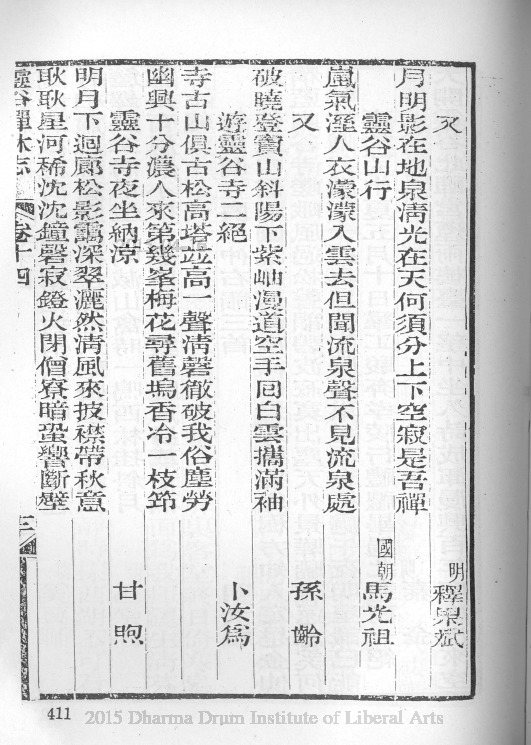 又　明釋果斌
月明影在地泉清光在天何須分上下空寂是吾禪
靈谷山行　國朝馬光祖
嵐氣溼人衣濛濛入雲去但聞流泉聲不見流泉處
又　孫齡
破曉登寶山斜陽下紫岫漫道空手回白雲攜滿袖
遊靈谷寺二絕　卜汝為
寺古山俱古松高塔竝高一聲清磬徹破我俗塵勞
幽興十分濃人來第幾峯梅花尋舊塢香冷一枝筇
靈谷寺夜坐納涼　甘煦
明月下迴廊松影靄深翠灑然清風來披襟帶秋意
耿耿星河稀沈沈鐘磬寂鐙火閉僧寮暗蛩響斷壁
靈谷禪林志　卷十四　三
411
2015 Dharma Drum Institute of Liberal Arts